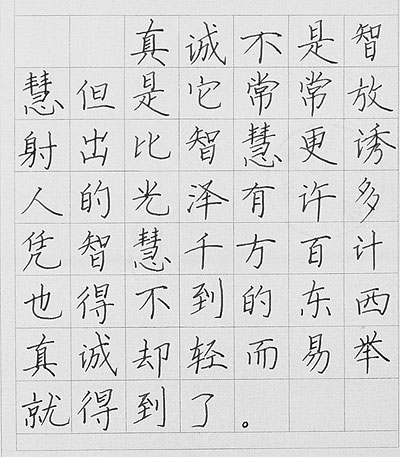 真诚不是智
慧但是它常常放
射出比智慧更诱
人的光泽有许多
凭智慧千方百计
也得不到的东西
真诚却轻而易举
就得到了。